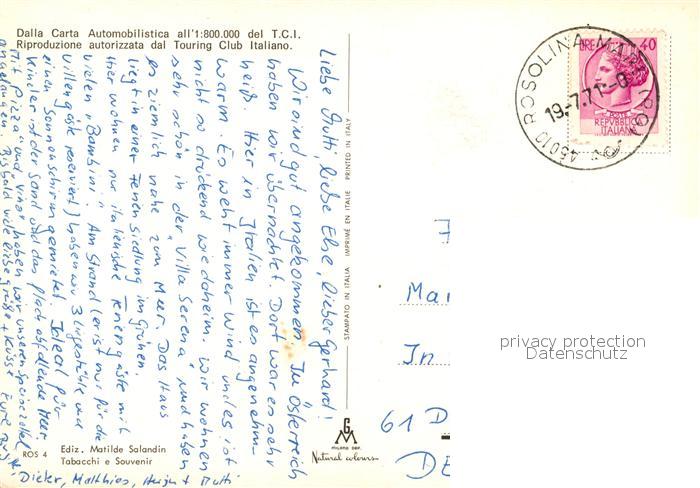 Dalla Carta Automobilistica all'1:800.000 del T.C.I.
Riproduzione autorizzata dal Touring Club Italiano.
Liebe Mutti, liebe Else, lieber Gerhard!
Wir sind gut angekommen. In Österreich
haben wir übernachtet. Dort war es sehr
heiß. Hier in Italien ist es angenehm
warm. Es weht immer Wind und es ist
nicht so drückend wie daheim. Wir wohnen
sehr schön in der "Villa Serena" und haben
es ziemlich nahe zum Meer. Das Haus
liegt in einer Feriensiedlung im Grünen
Hier wohnen nur italienische Feriengäste mit
vielen "Bambini". Am Strand (er ist nur für die
Villengäste reserviert) haben wir 3 Liegestühle und
einen Sonnenschirm gemietet. Ideal für
Kinder ist der Sand und das flach abfallende Meer.
Mit "Pizza" und "Vino" haben wir unseren Speisezettel
angefangen. Bis bald viele liebe Grüße + Küsse Eure
Dieter, Matthias,
ROS 4
Ediz. Matilde Salandin
Tabacchi e Souvenir
STAMPATO IN ITALIA IMPRIMÉ EN ITALIE PRINTED IN ITALY
G M
milano dep.
Natural colours
45010 ROSOLINA MARE (ROVIGO)
19-7.71
LIRE 40
POSTE
REPUBBLICA
ITALIANA
Mai
In
61 D
DE
privacy protection
Datenschutz